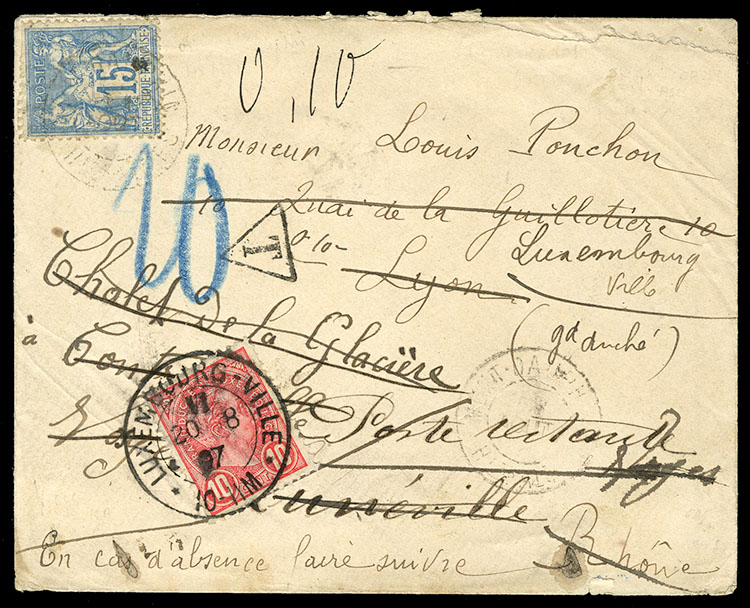 POSTES
15
REPUBLIQUE FRANCAISE
0,10
Monsieur Louis Ponchon
10 Quai de la Guillotière 10
10
T
Lyon
Luxembourg
Ville
(gd duché)
Chalet de la Glacière
à
LUXEMBOURG-VILLE
VI
20 8
97
10
Poste restante
Lunéville
Rhône
En cas d'absence faire suivre